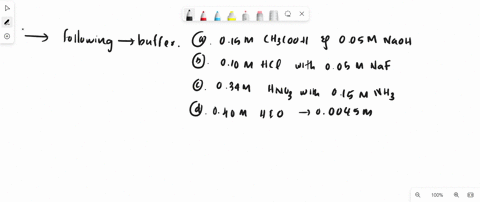 → following → buffer. (a) 0.15 M CH3COOH & 0.05 M NaOH
(b). 0.10 M HCl with 0.05 M NaF
(c). 0.34 M HNO3 with 0.15 M NH3
(d). 0.40 M HCO → 0.0045 M
100%